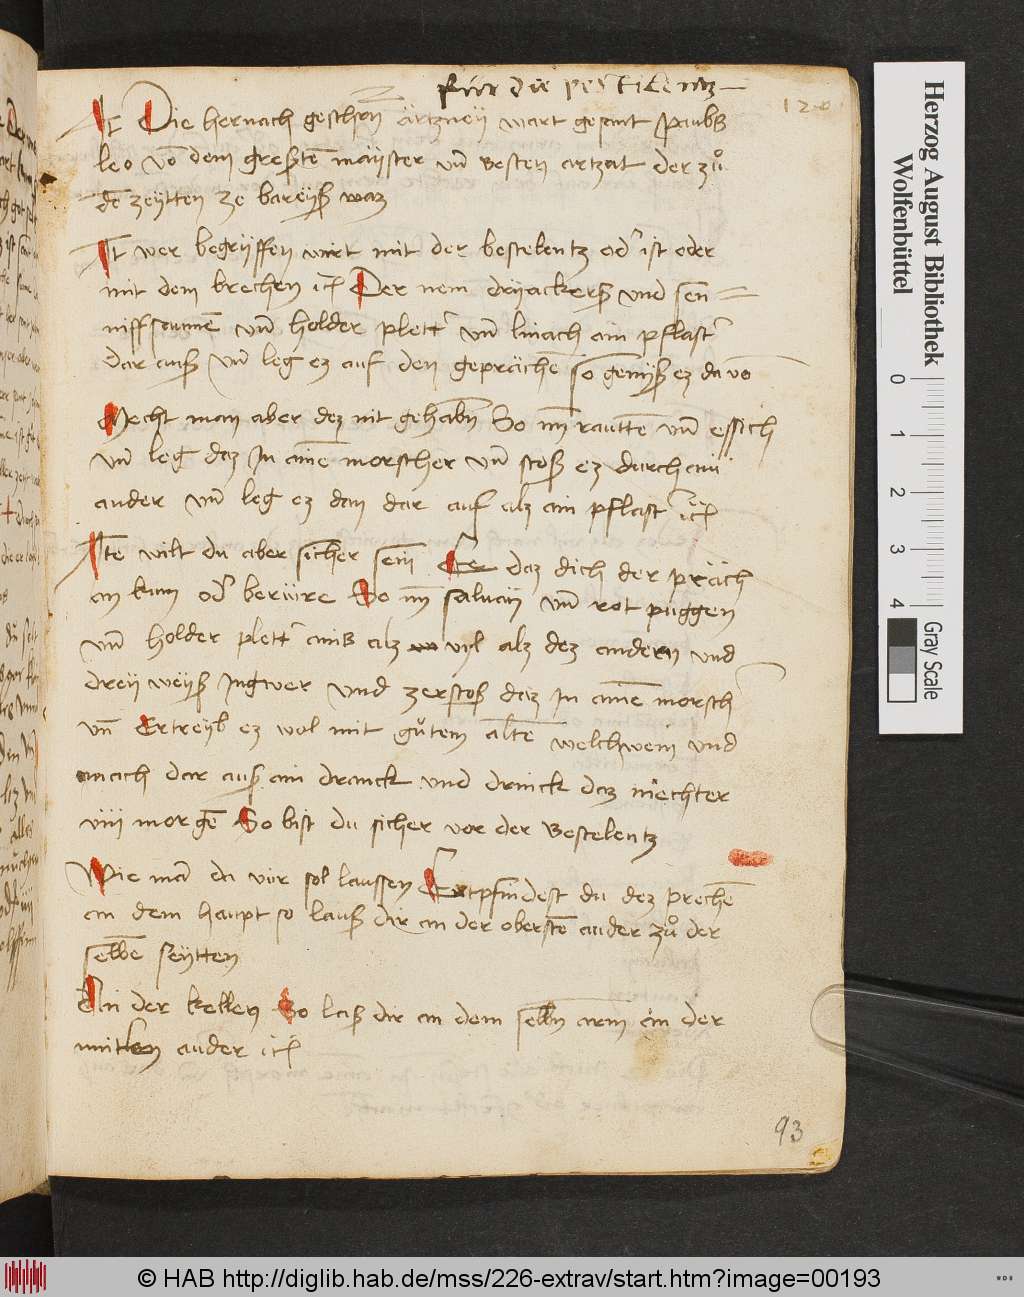 für die pestilentz
120
It Die hernach geschrn ärtzneÿ wart gesant Paubs
leo võ dem gresten maÿster vñ besten artzat der zů
dē zeÿtten ze bareÿß waz
It wer begrÿffen wirt mit der bestelentz od' ist oder
mit dem brechen Der nem drÿackerß vnd sen
niffsaumē vñ holder plett' vñ ain pflast'
dar auß vñ leg ez auf den geprächē so genÿst ez da võ
Mecht man aber dez nit gehabn So nÿm rauttē vñ essich
vñ leg daz In ainē morscher vñ stoß ez durch ain
ander vñ leg ez dan dar auf alz ain pflast'
Itē wilt du aber sicher sein Ee daz dich der präch
an kum od' berüre So nm saluaÿ vñ rot puggen
vñ holder plett' ains alz vyl alz dez andern vnd
dreÿ weÿß Ingwer vnd zerstoß daz In ainē morsch
vñ Ertreÿb ez wol mit gůtem altē welchwein vnd
mach dar auß ain dranck vnd drinck daz niechter
viiii morgē So bist du sicher vor der Bestelentz
Wie mā da vür sol laussen Entpfindest du dez prechē
an dem haupt so lauß dir an der oberstē auder zů der
selbē seÿtten
An der kellen So laß dir an dem selbn arm an der
mitlen auder
93
Herzog August Bibliothek
Wolfenbüttel
0 1 2 3 4
Gray Scale
© HAB http://diglib.hab.de/mss/226-extrav/start.htm?image=00193